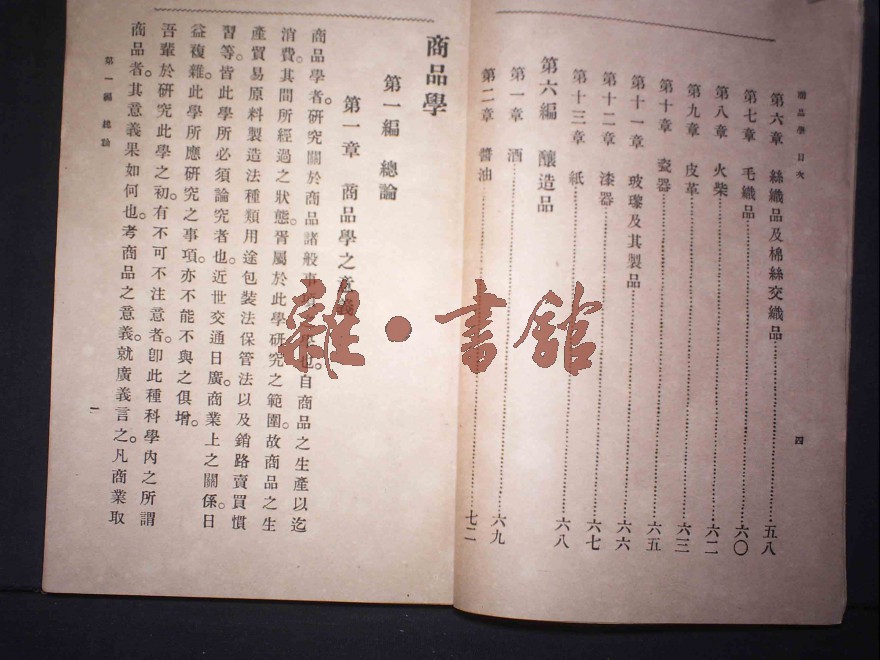 商品學 目次
第六章 絲織品及棉絲交織品 五八
第七章 毛織品 六〇
第八章 火柴 六二
第九章 皮革 六三
第十章 瓷器 六五
第十一章 玻瓈及其製品 六六
第十二章 漆器 六七
第十三章 紙 六八
第六編 釀造品
第一章 酒 六九
第二章 醬油 七二
四
商品學
第一編 總論
第一章 商品學之意義
商品學者。研究關於商品諸般事 也。自商品之生產以迄
消費。其間所經過之狀態。胥屬於此學研究之範圍。故商品之生
產貿易原料製造法種類用途包裝法保管法以及銷路賣買慣
習等。皆此學所必須論究者也。近世交通日廣。商業上之關係。日
益複雜。此學所應研究之事項。亦不能不與之俱增。
吾輩於研究此學之初。有不可不注意者。卽此種科學內之所謂
商品者。其意義果如何也。考商品之意義。就廣義言之。凡商業取
第一編 總論
一
雜·書館